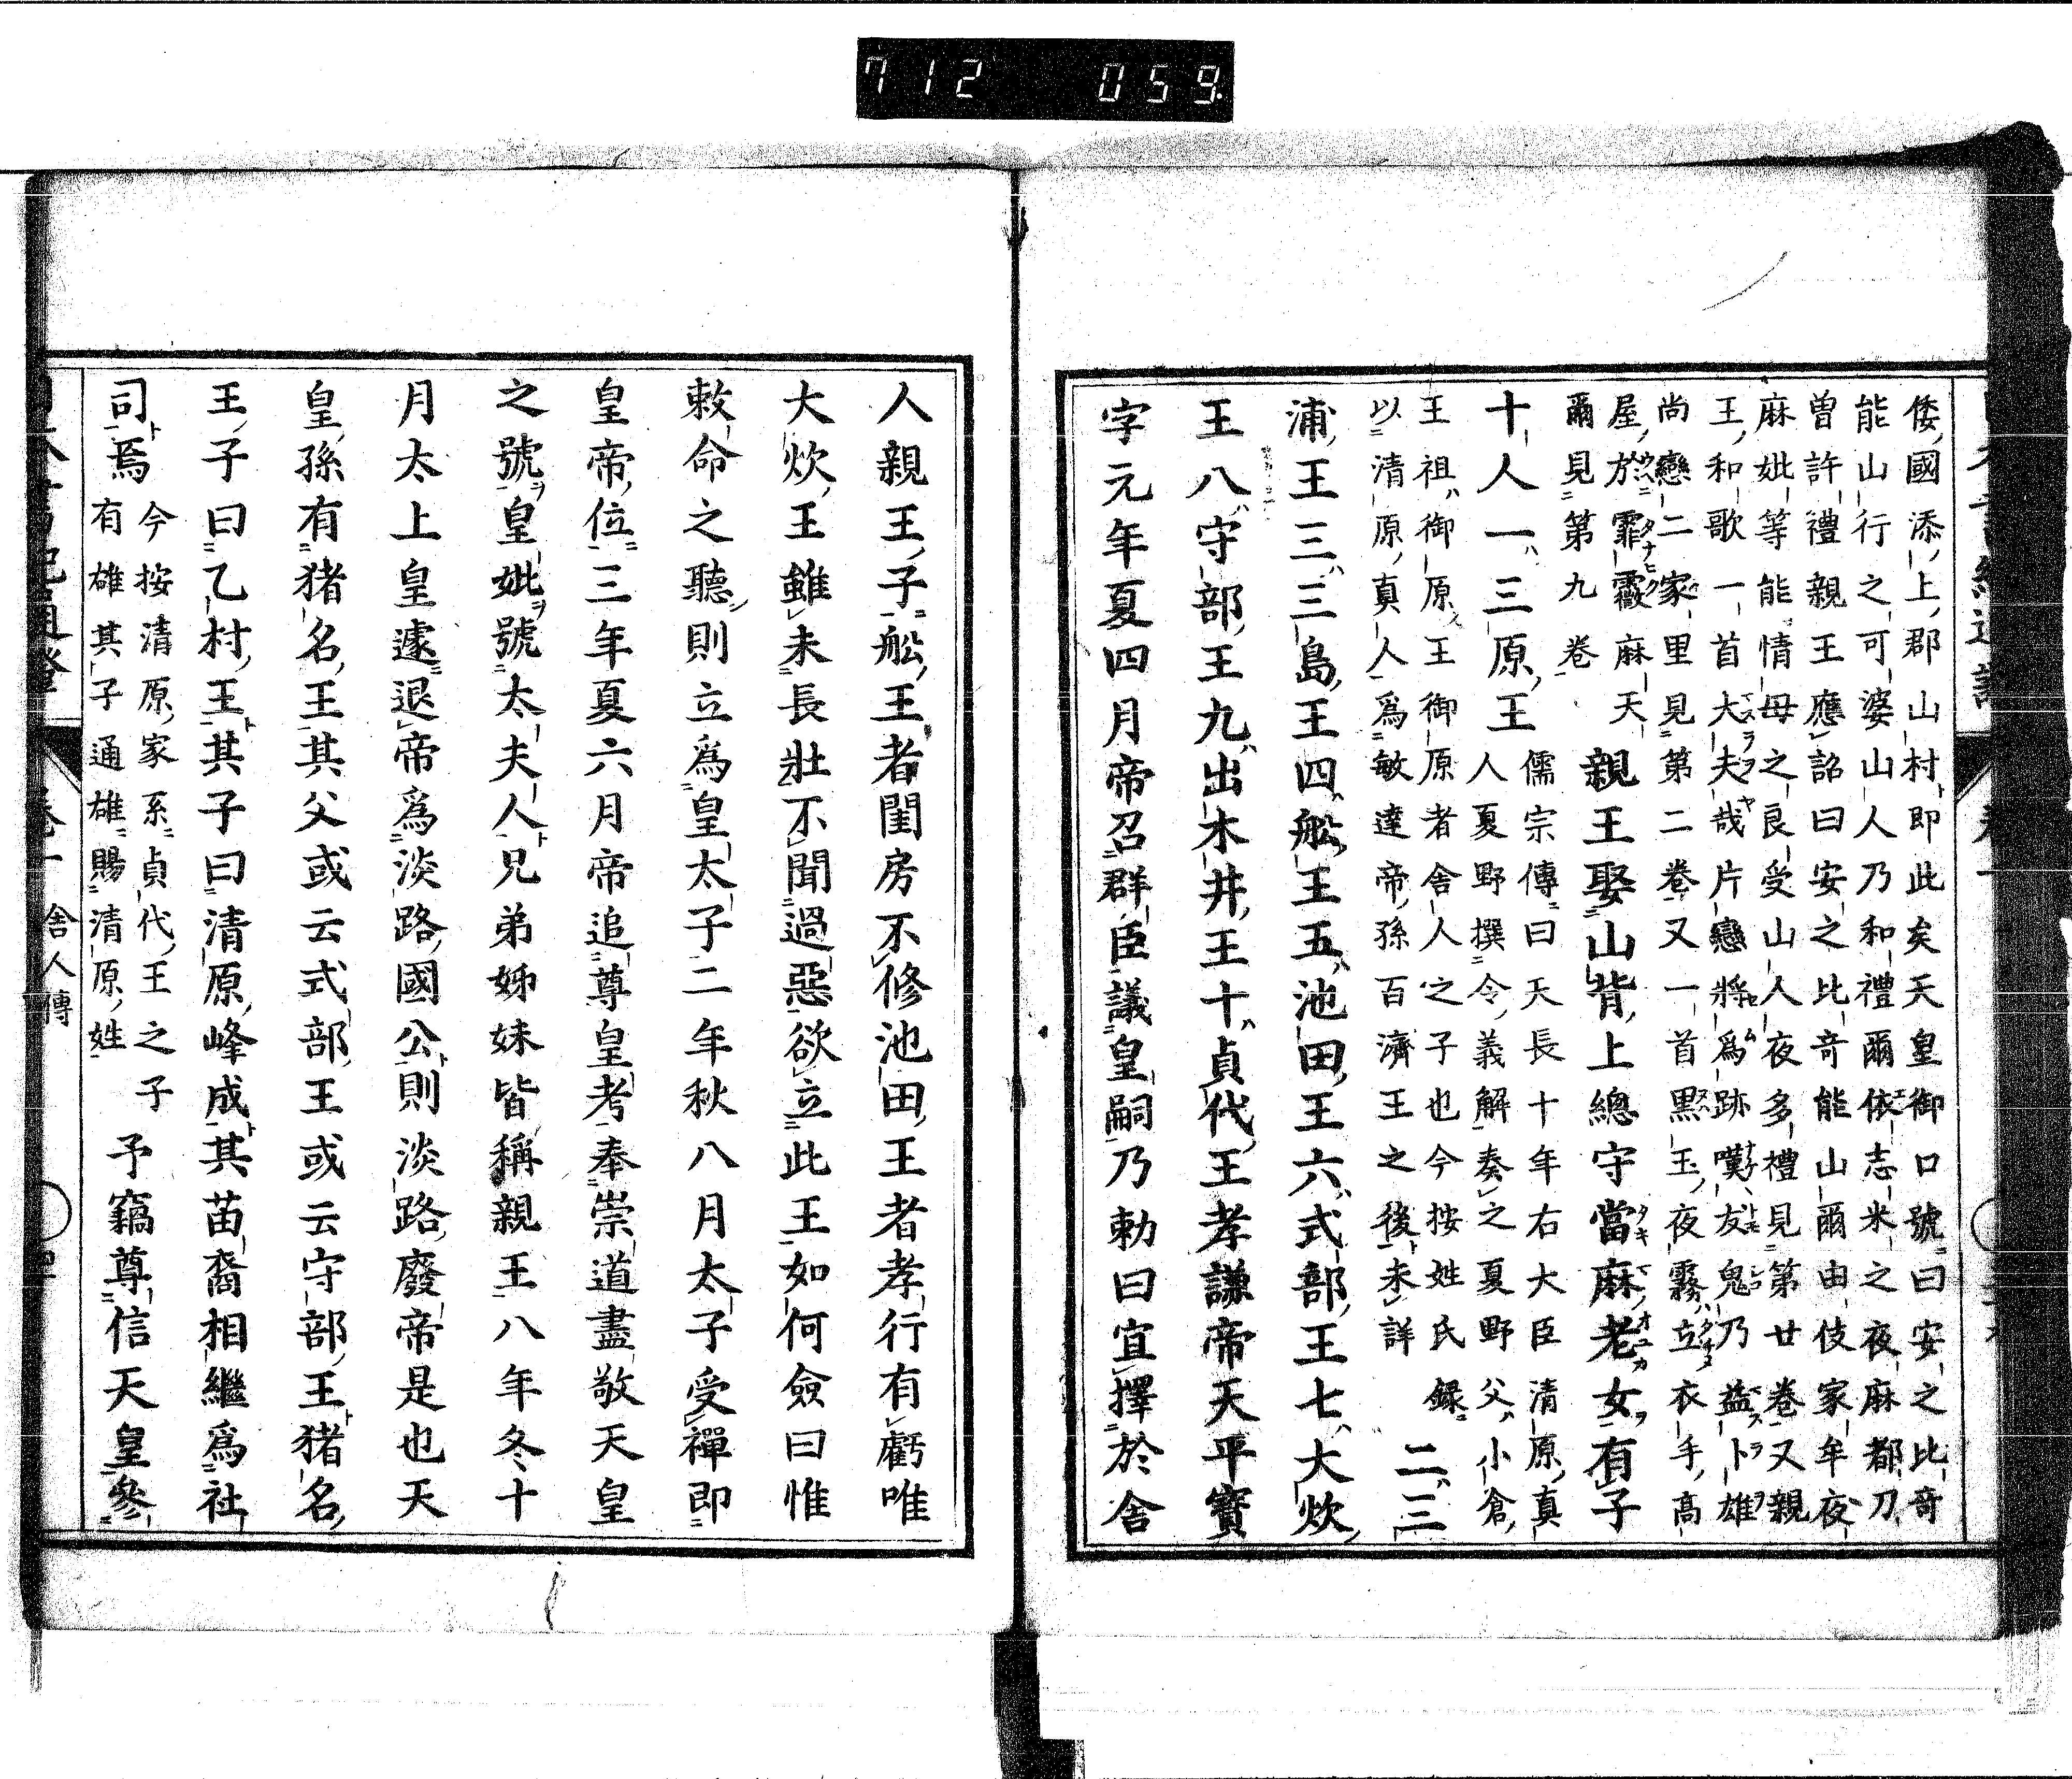 712 059
倭國添上郡山村即此矣天皇御口號曰安之比奇
能山行之可婆山人乃和禮爾依志米之夜麻都刀
曽許禮親王應詔曰安之比奇能山爾由伎家牟夜
麻妣等能情母之良受山人夜多禮見第廿卷又親
王和歌一首大夫哉片戀將爲跡嘆友鬼乃益卜雄
尚戀二家里見第二卷又一首黑玉夜霧立衣手高
屋於霏霺麻天
爾見第九卷
親王娶山背上總守當麻老女有子
十人一三原王
儒宗傳曰天長十年右大臣清原真
人夏野撰令義解奏之夏野父小倉
王祖御原王御原者舍人之子也今按姓氏録
以清原真人爲敏達帝孫百濟王之後未詳
二三
浦王三三島王四舩王五池田王六式部王七大炊
王八守部王九出木井王十貞代王孝謙帝天平寶
字元年夏四月帝召群臣議皇嗣乃勅曰宜擇於舍
人親王子舩王者閨房不修池田王者孝行有虧唯
大炊王雖未長壯不聞過惡欲立此王如何僉曰惟
敕命之聽則立爲皇太子二年秋八月太子受禪即
皇帝位三年夏六月帝追尊皇考奉崇道盡敬天皇
之號皇妣號太夫人兄弟姊妹皆稱親王八年冬十
月太上皇遽退帝爲淡路國公則淡路廢帝是也天
皇孫有猪名王其父或云式部王或云守部王猪名
王子曰乙村王其子曰清原峰成其苗裔相繼爲社
司焉
今按清原家系貞代王之子
有雄其子通雄賜清原姓
予竊尊信天皇參
舍人傳